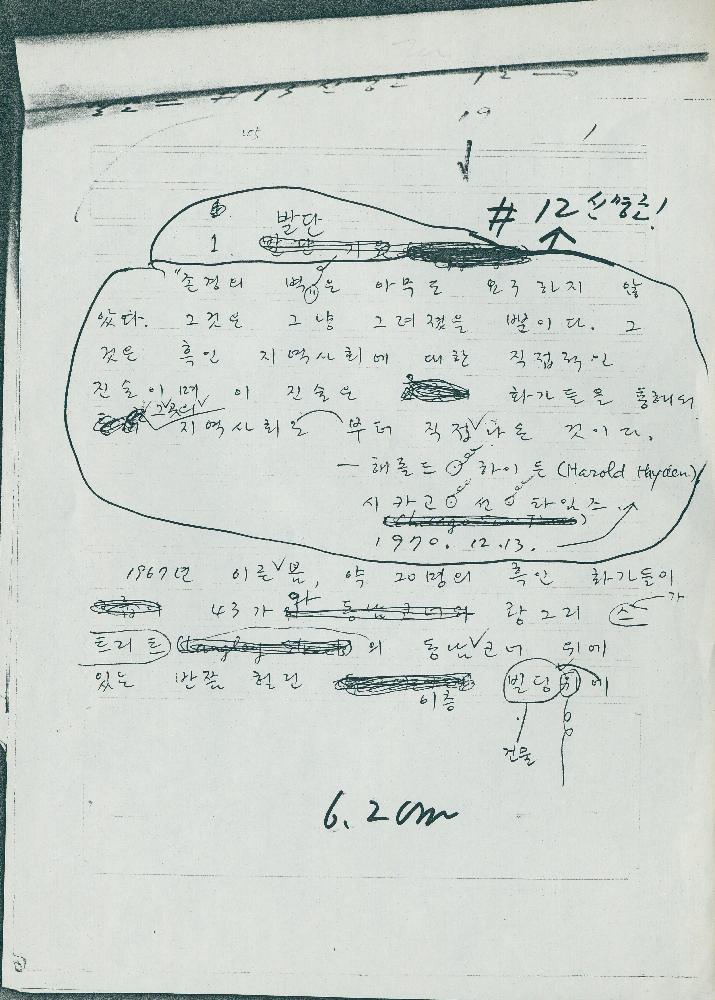 19
1
# 12 신명조!
발단
1
"존경의 벽"은 아무도 요구하지 않
았다. 그것은 그냥 그려졌을 뿐이다. 그
것은 흑인 지역사회에 대한 직접적인
진술이며 이 진술은 화가들을 통해서
그곳의 지역사회로부터 직접 나온 것이다.
— 해롤드 하이든 (Harold Hayden),
시카고 선 타임즈
(Chicago Sun Times)
1970. 12. 13.
1967년 이른 봄, 약 20명의 흑인 화가들이
43가와 랑그리 스
가
트리트 의 동남 코너 위에
있는 반쯤 헐린 빌딩 위에
이층
건물
6.2cm